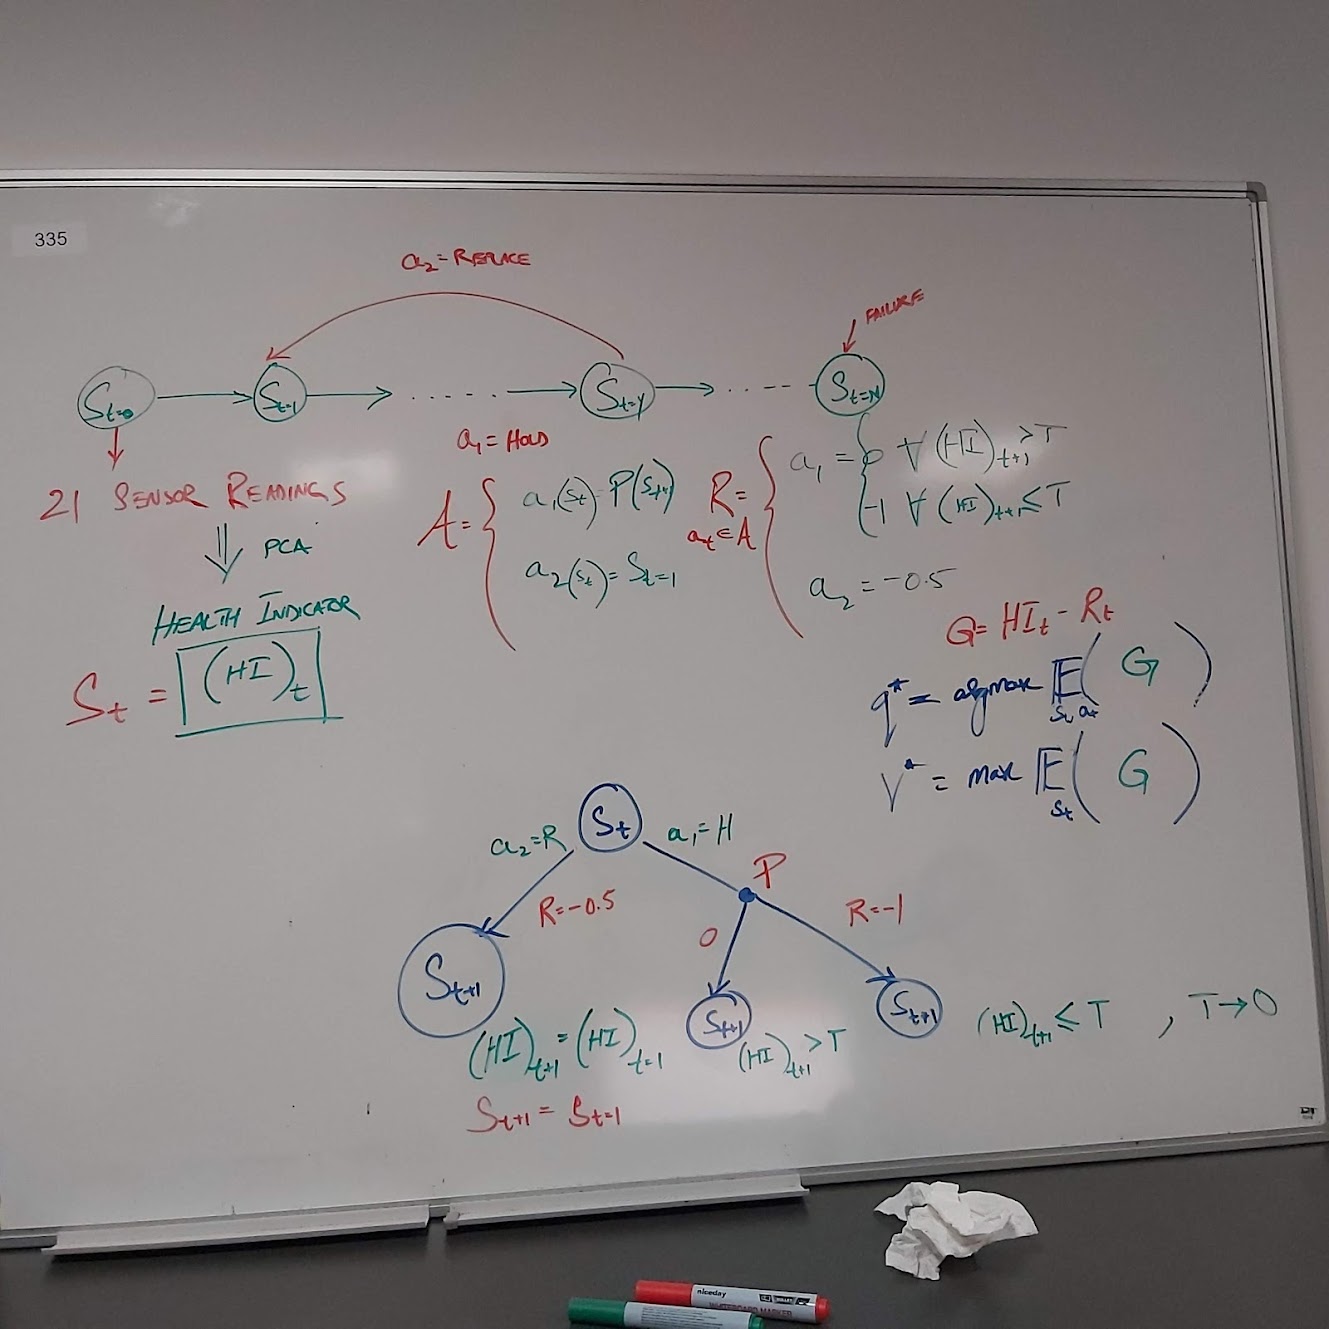 335
a₂ = REPLACE
FAILURE
S_{t=0}
S_{t=1}
.....
S_{t=y}
....
a₁ = HOLD
21 SENSOR READINGS
PCA
HEALTH INDICATOR
S_t = (HI)_t
A = {
a₁(S_t)
P(S_{t+1})
a₂(S_t) = S_{t=1}
R =
a_t ∈ A
{
a₁ = { 0 ∀ (HI)_{t+1} > T
-1 ∀ (HI)_{t+1} ≤ T
a₂ = -0.5
G = HI_t - R_t
q* = argmax E_{S_t, a_t} ( G )
V* = max E_{S_t} ( G )
S_t
a₂ = R
a₁ = H
P
R = -0.5
0
R = -1
S_{t+1}
S_{t+1}
S_{t+1}
(HI)_{t+1} = (HI)_{t=1}
(HI)_{t+1} > T
(HI)_{t+1} ≤ T , T → 0
S_{t+1} = S_{t=1}
niceday
WHITEBOARD MARKER